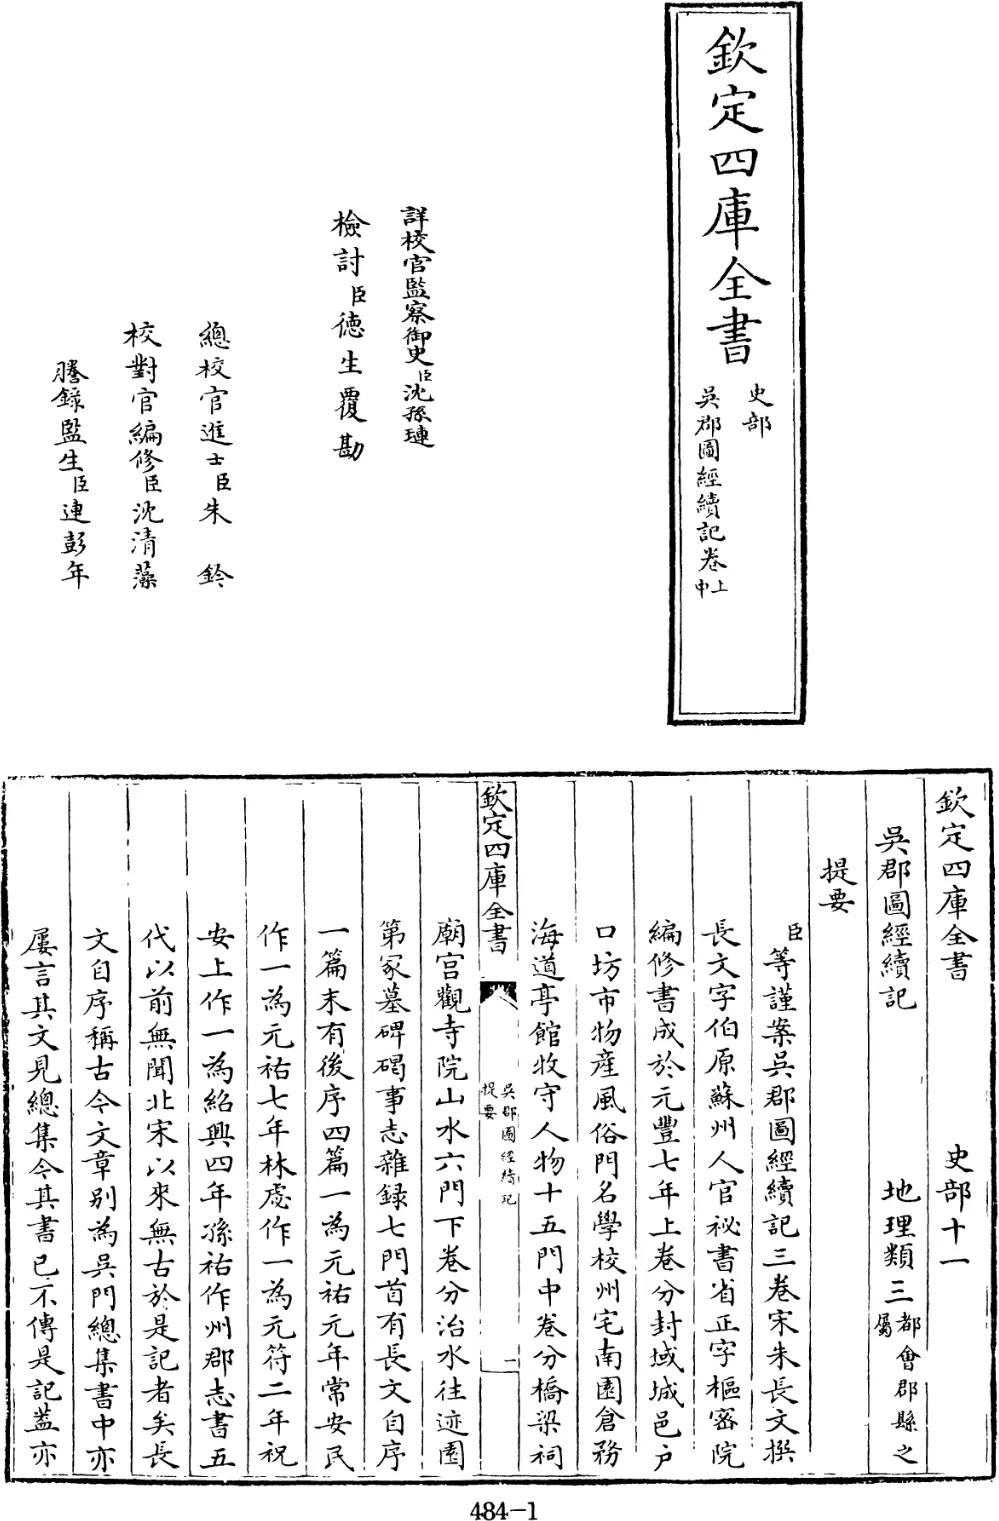 欽定四庫全書
史部
吳郡圖經續記卷上中
詳校官監察御史臣沈孫璉
檢討臣德生覆勘
總校官進士臣朱鈐
校對官編修臣沈清藻
謄錄監生臣連彭年
欽定四庫全書 史部十一
吳郡圖經續記 地理類三都會郡縣之屬
提要
臣等謹案吳郡圖經續記三卷宋朱長文撰
長文字伯原蘇州人官祕書省正字樞密院
編修書成於元豐七年上卷分封域城邑户
口坊市物產風俗門名學校州宅南園倉務
海道亭館牧守人物十五門中卷分橋梁祠
欽定四庫全書
吳郡圖經續記
提要
一
廟宫觀寺院山水六門下卷分治水往迹園
第冢墓碑碣事志雜録七門首有長文自序
一篇末有後序四篇一為元祐元年常安民
作一為元祐七年林虙作一為元符二年祝
安上作一為紹興四年孫祐作州郡志書五
代以前無聞北宋以來無古於是記者矣長
文自序稱古今文章别為吳門總集書中亦
屢言其文見總集今其書已不傳是記葢亦
484-1